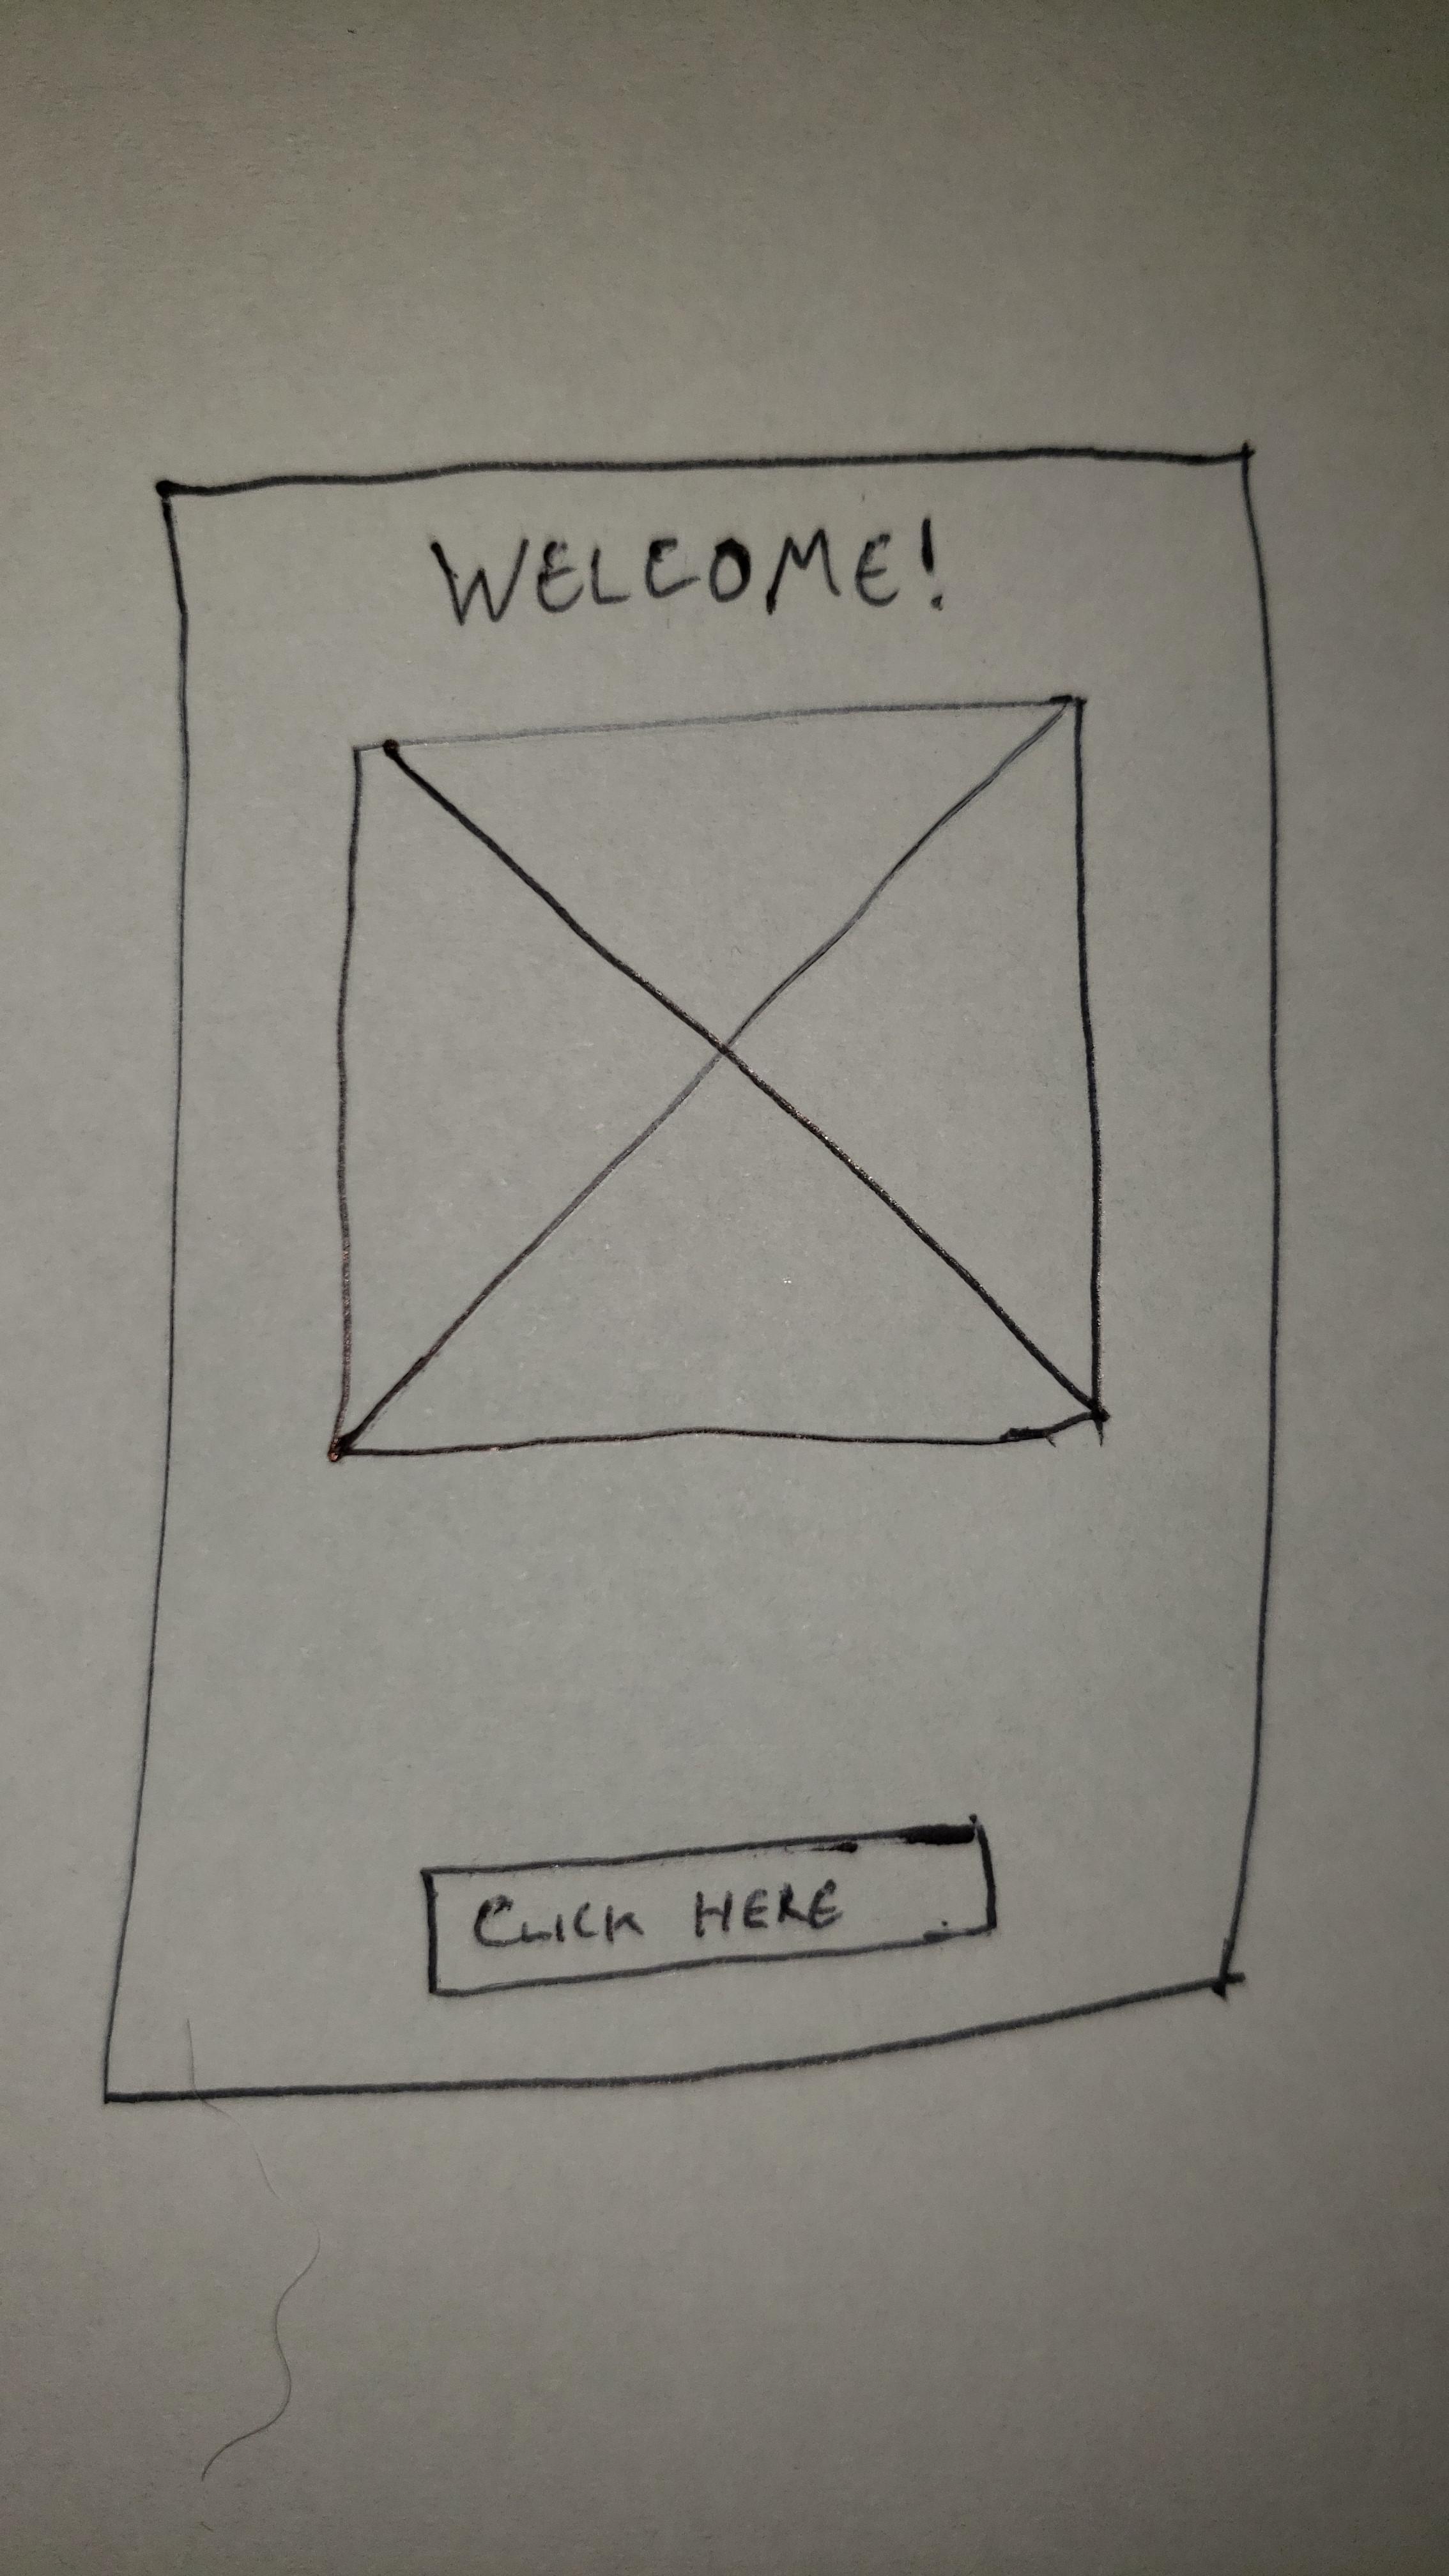 WELCOME!
CLICK HERE